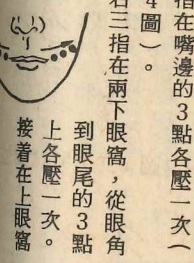 指在嘴邊的3點各壓一次（
4圖）。
右三指在兩下眼窩，從眼角
到眼尾的3點
上各壓一次。
接着在上眼窩